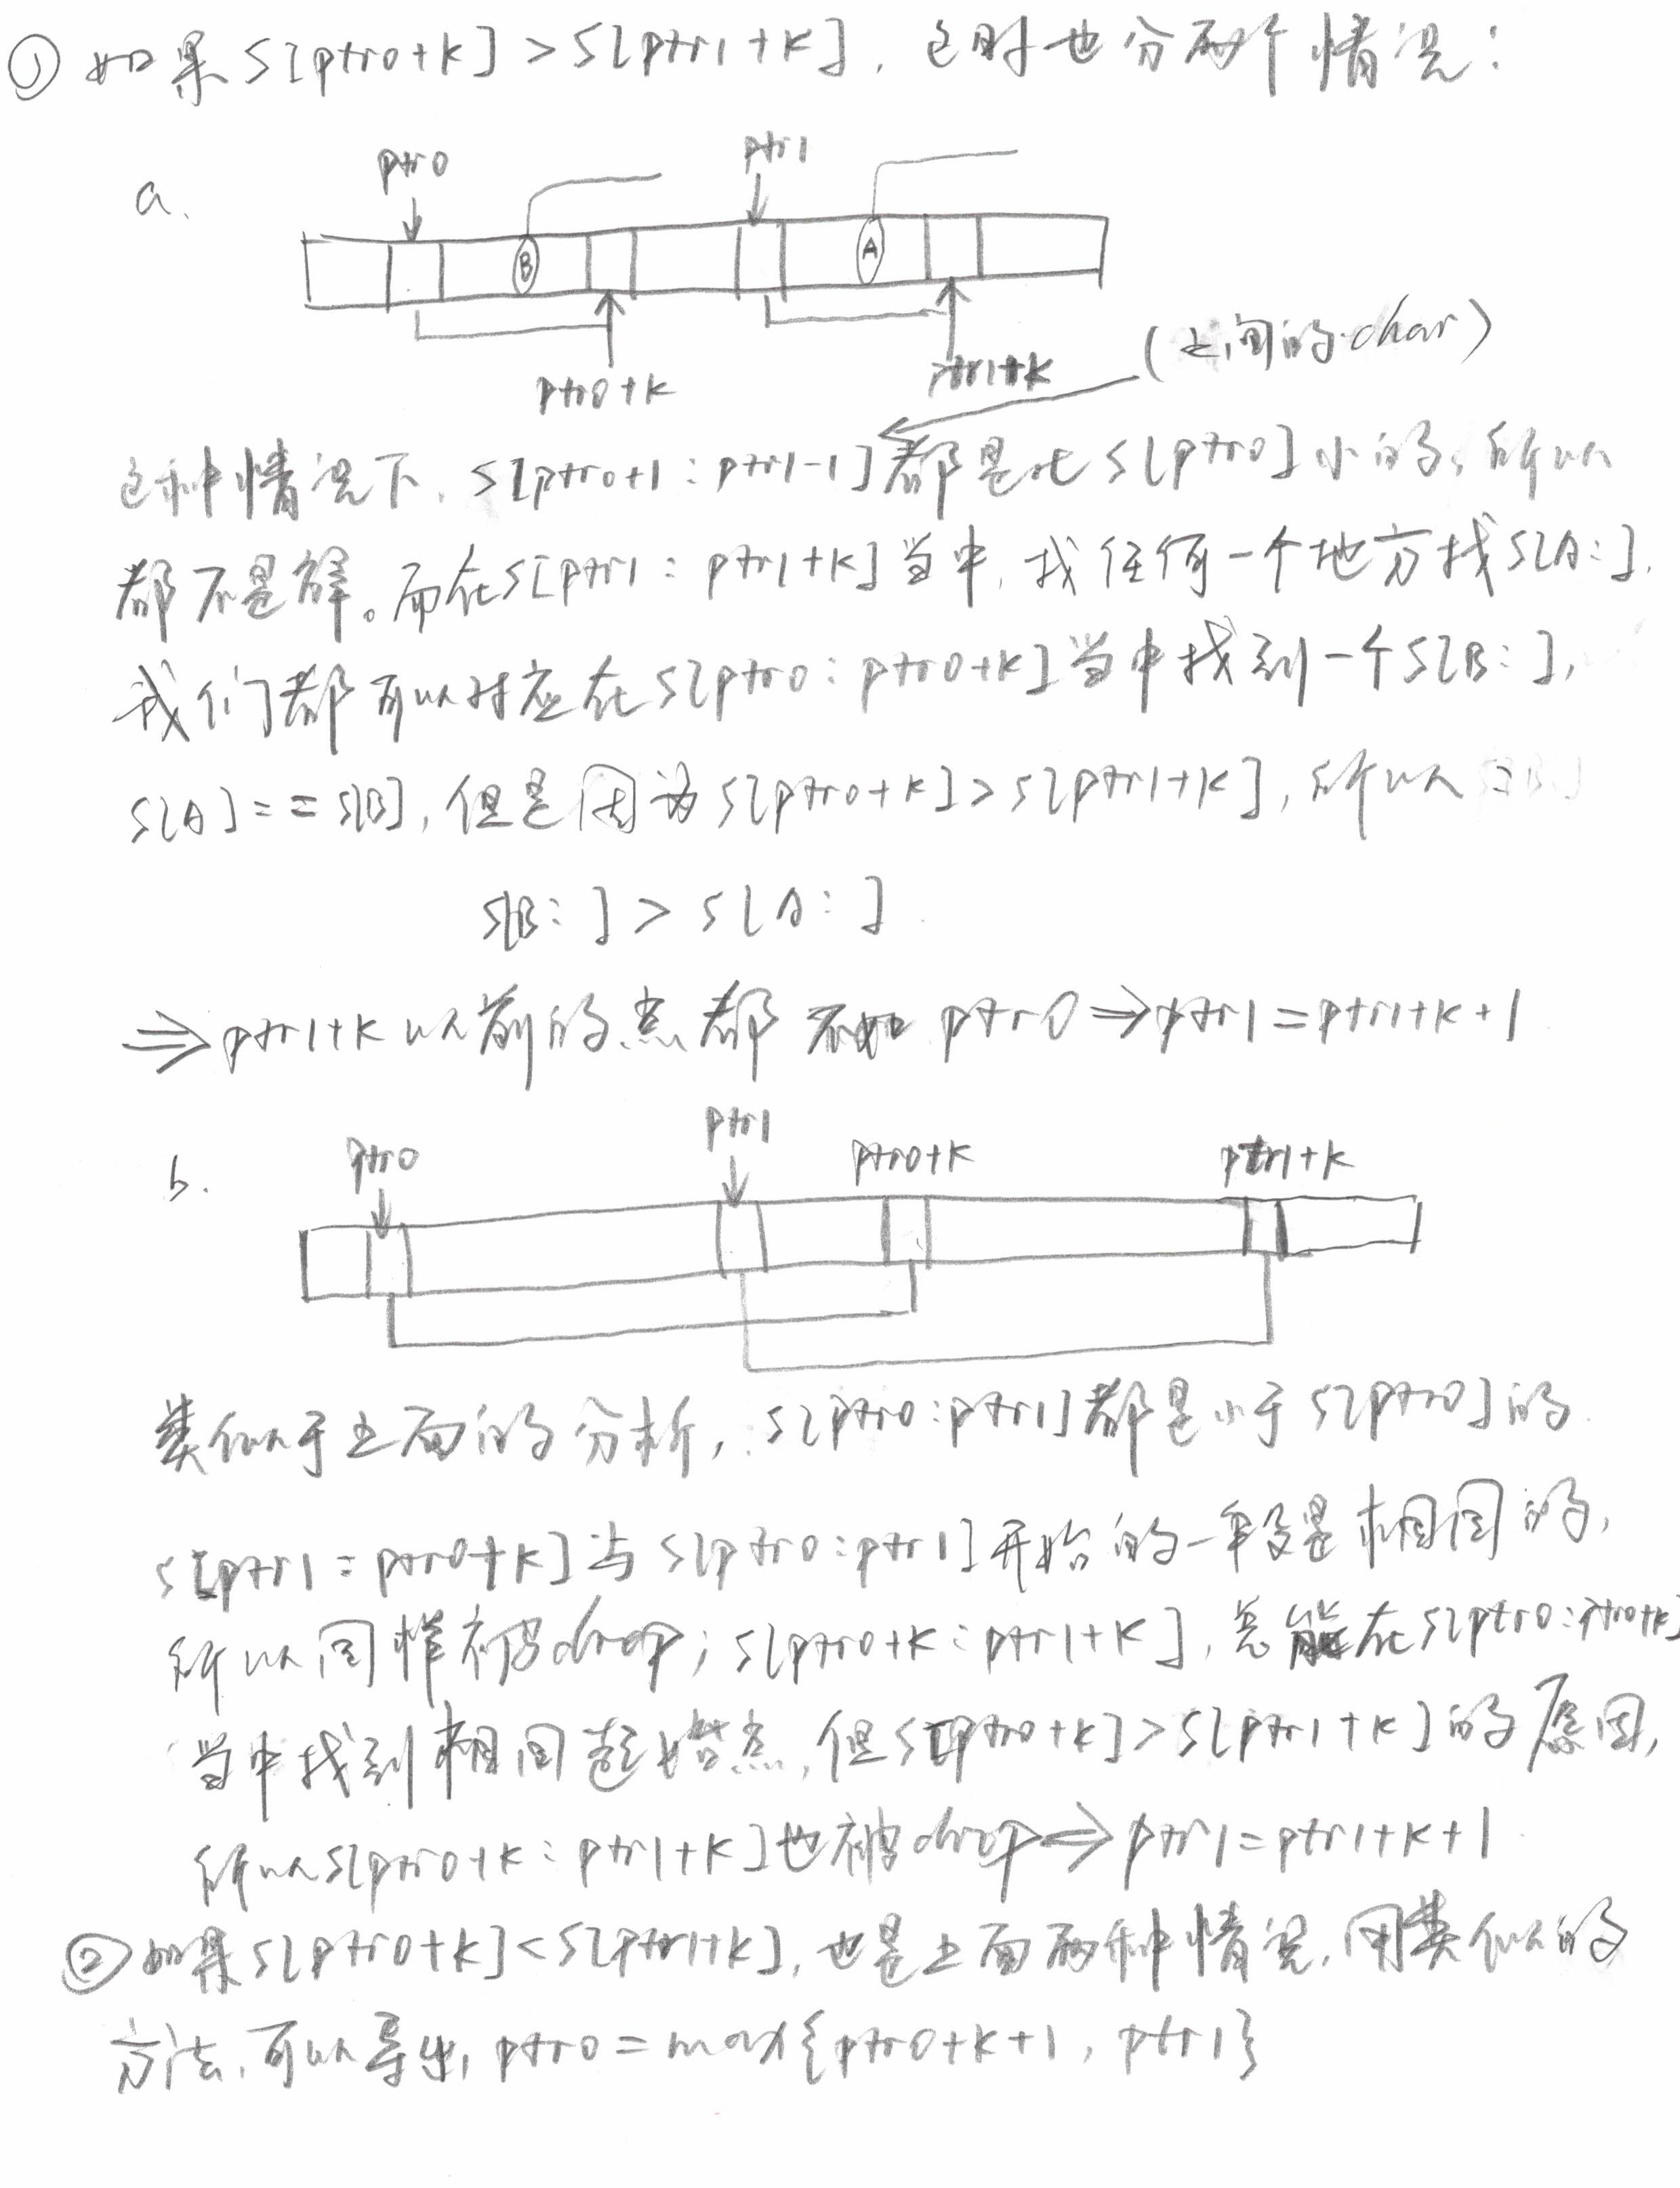 ① 如果 S[ptr0+k] > S[ptr1+k], 这时也分两个情况:
a.
ptr0
ptr1
B
A
ptr0+k
ptr1+k
(之间的char)
这种情况下, S[ptr0+1 : ptr1-1]都是比S[ptr0]小的, 所以
都不是解。而在S[ptr1 : ptr1+k]当中, 找任何一个地方找S[A:],
我们都可以对应在S[ptr0 : ptr0+k]当中找到一个S[B:],
S[A]==S[B], 但是因为S[ptr0+k]>S[ptr1+k], 所以
S[B:] > S[A:]
⇒ ptr1+k 以前的点都不如 ptr0 ⇒ ptr1=ptr1+k+1
b.
ptr0
ptr1
ptr0+k
ptr1+k
类似于上面的分析, S[ptr0:ptr1]都是小于S[ptr0]的
S[ptr1:ptr0+k]与S[ptr0:ptr1]开始的一段是相同的,
所以同样被drop; S[ptr0+k:ptr1+k], 总能在S[ptr0:ptr0+k]
当中找到相同起始点, 但S[ptr0+k]>S[ptr1+k]的原因,
所以S[ptr0+k:ptr1+k]也被drop ⇒ ptr1=ptr1+k+1
② 如果S[ptr0+k]<S[ptr1+k], 也是上面两种情况, 用类似的
方法, 可以导出, ptr0 = max{ptr0+k+1, ptr1}